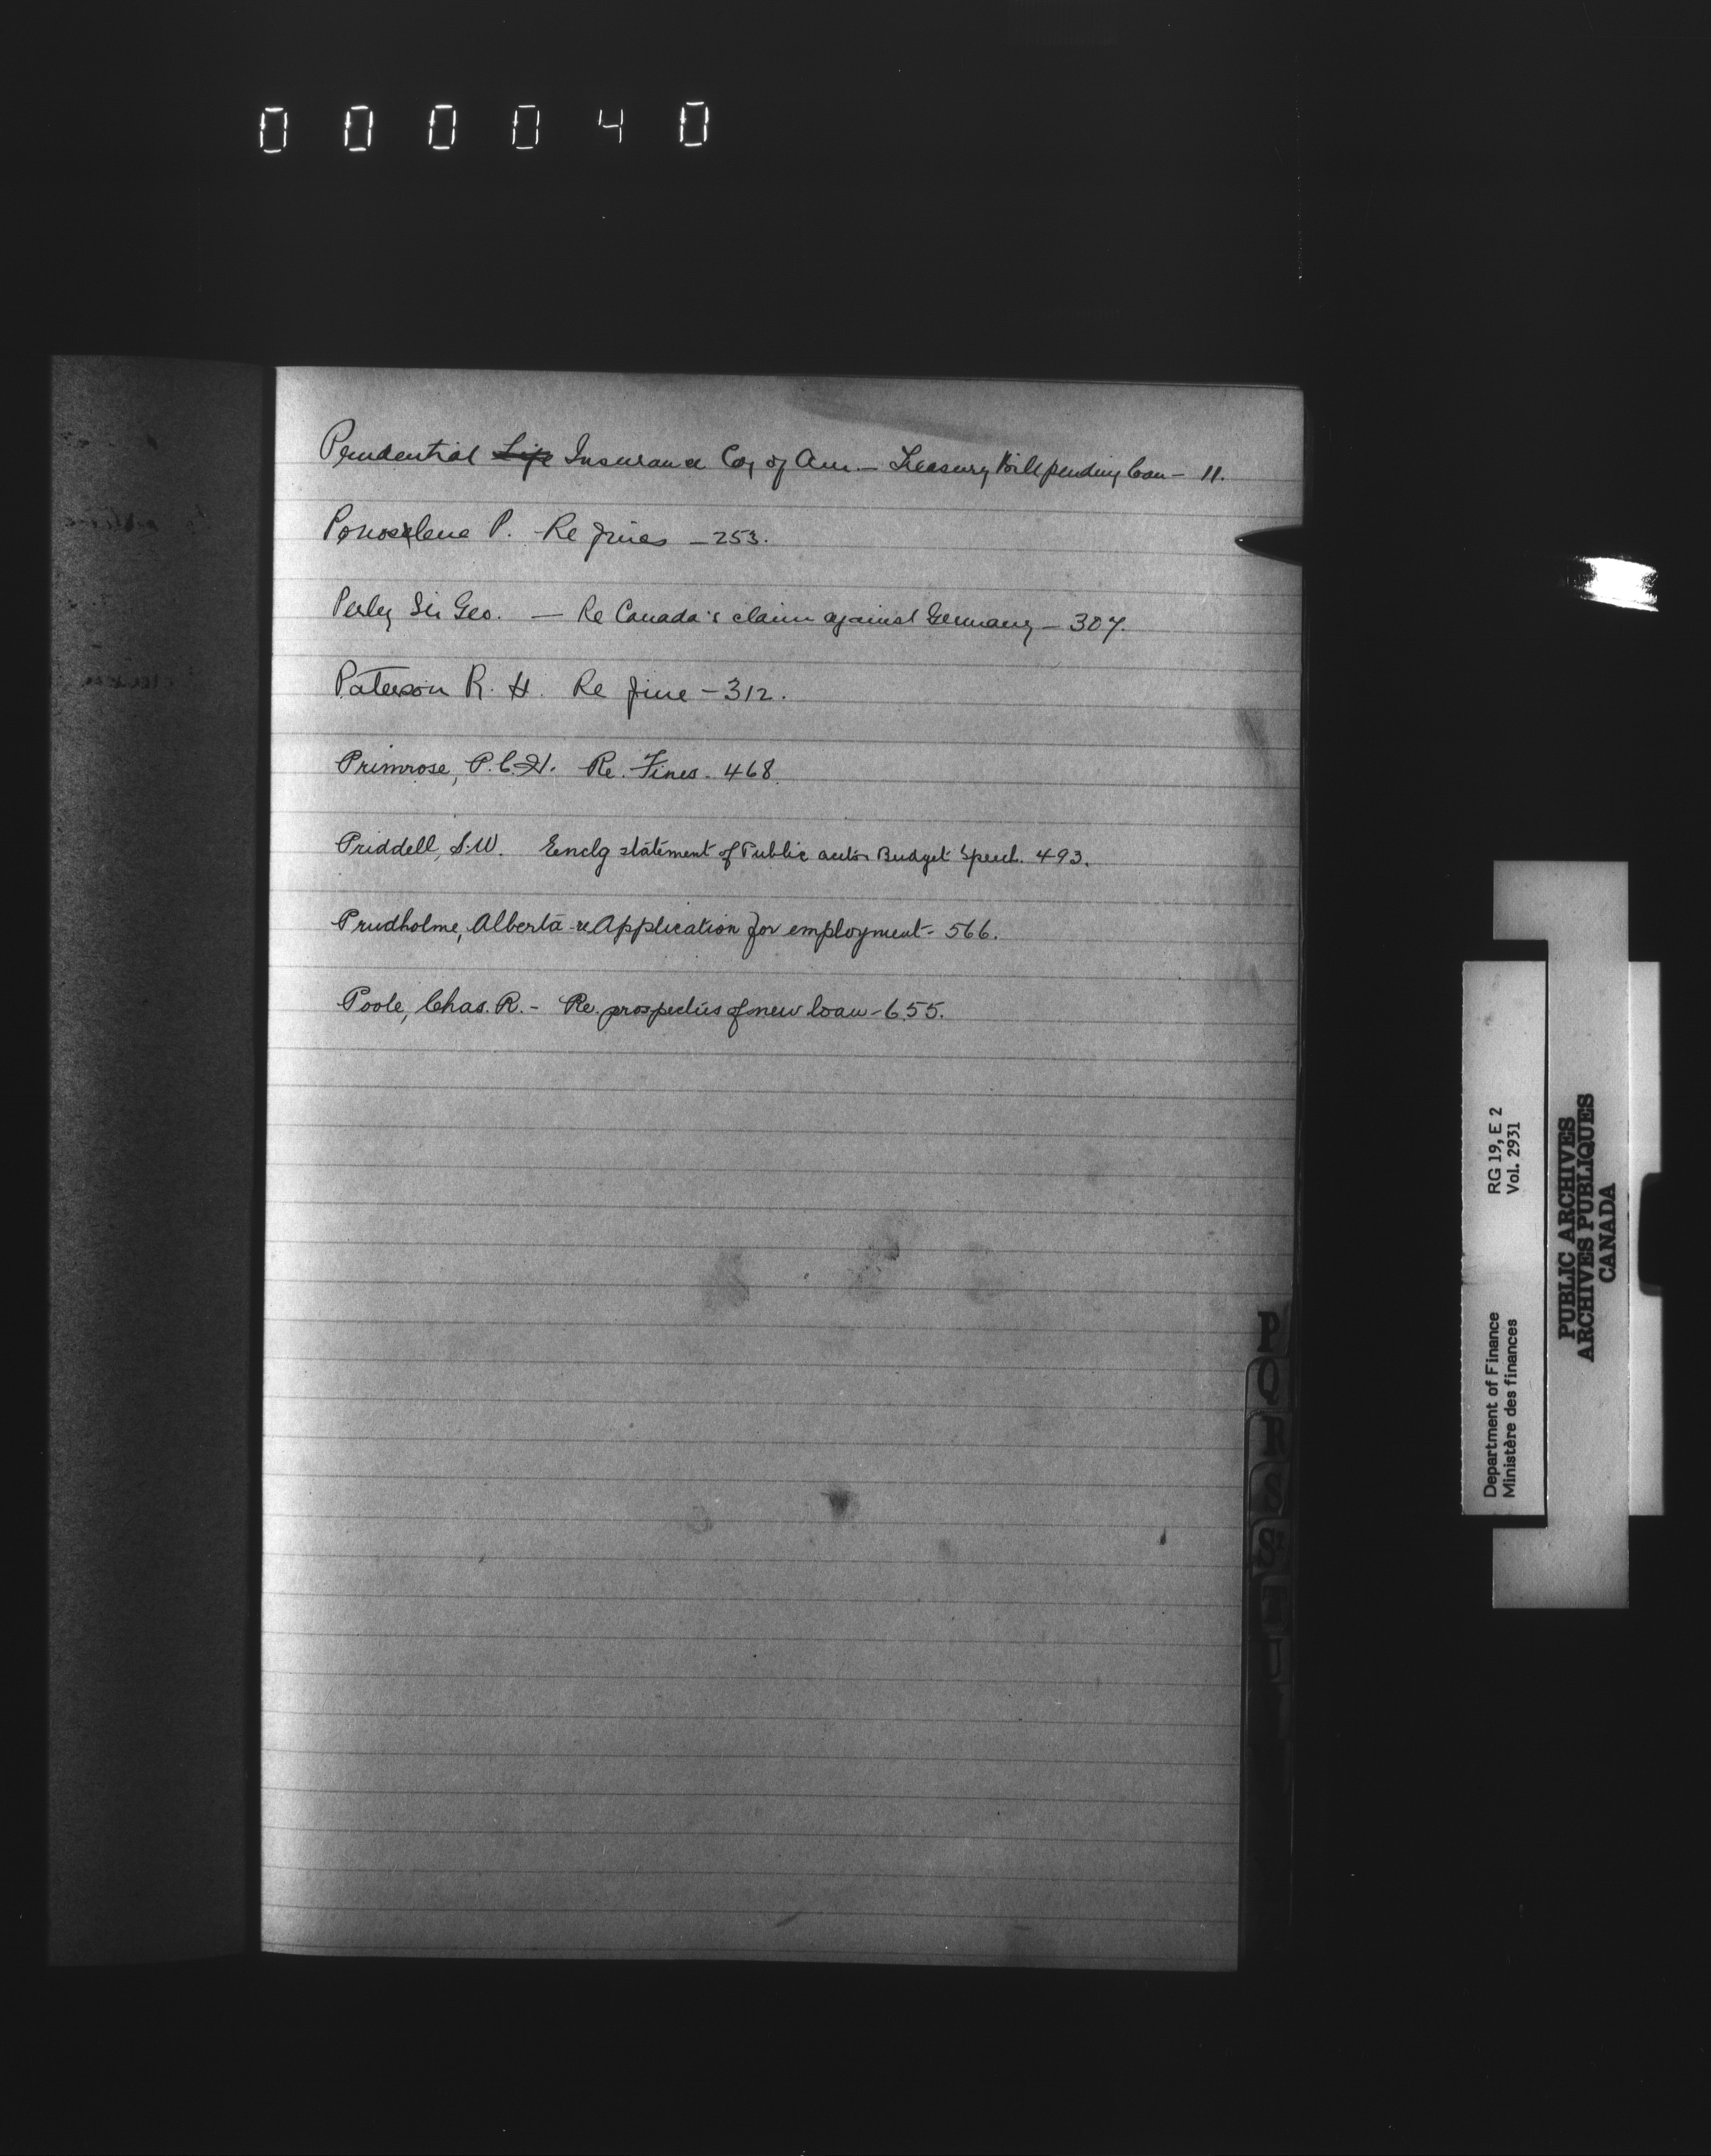 000040
Prudential Life Insurance Coy of Am — Treasury Bills pending loan — 11.
P. Re Fines — 253.
Perley Sir Geo. — Re Canada's claim against Germany — 307.
Paterson R. H. Re Fine — 312.
Primrose, P.C.H. Re. Fines. 468
Priddell, S.W. Enclg statement of Public Budget Speech. 493.
Prudholme, Alberta re Application for employment - 566.
Poole, Chas. R. - Re. prospectus of new loan - 655.
P
Q
R
S
RG 19, E 2
Vol. 2931
Department of Finance
Ministère des finances
PUBLIC ARCHIVES
ARCHIVES PUBLIQUES
CANADA